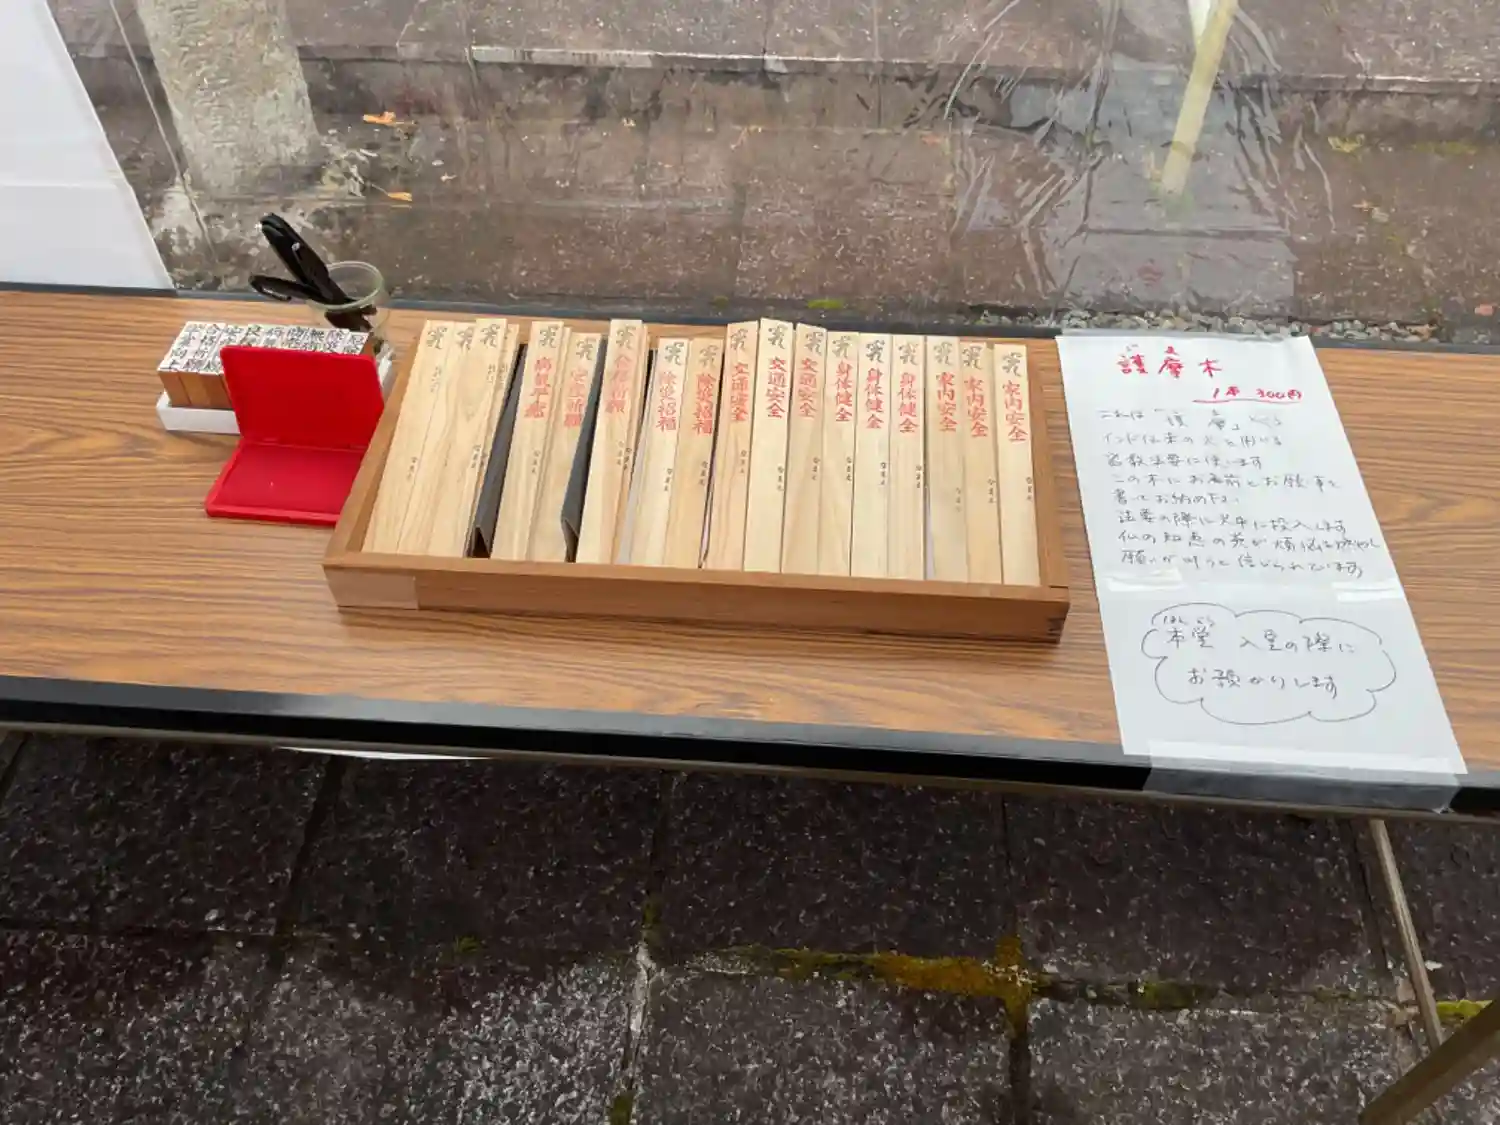 病気平癒
安産祈願
合格祈願
除災招福
除災招福
交通安全
交通安全
交通安全
身体健全
身体健全
身体健全
家内安全
家内安全
家内安全
なまえ
なまえ
なまえ
なまえ
なまえ
なまえ
なまえ
なまえ
なまえ
なまえ
ごま
護摩木
1本 300円
これは「護摩」という
インド伝来の火を用いる
密教法要に使います
この木にお名前とお願い事を
書いてお納め下さい
法要の際に火中に投入します
仏の知恵の炎が煩悩を燃やし
願いが叶うと信じられています
ほんどう
本堂 入堂の際に
お預かりします